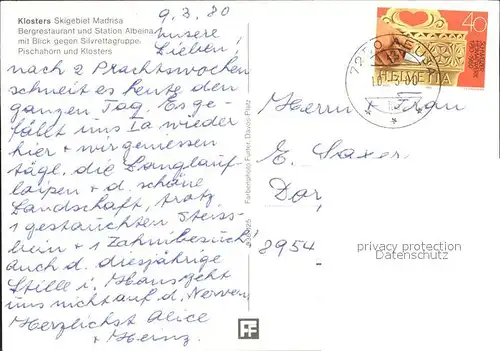 Klosters Skigebiet Madrisa
Bergrestaurant und Station Albeina
mit Blick gegen Silvrettagruppe,
Pischahorn und Klosters
9.3.80
Unsere
Lieben!
nach 2 Prachtswochen
schneit es heute den
ganzen Tag. Es ge-
fällt uns Ia wieder
hier + wir geniessen
tägl. die Langlauf-
loipen + d. schöne
Landschaft, trotz
1 gestauchten Steiss-
bein + 1 Zahnibesuch!
auch d. diesjährige
Stille i. Haus geht
uns nicht auf d. Nerven.
Herzlichst Alice
+ Heinz.
Farbenphoto Furter, Davos-Platz
HELVETIA
40
7250
Herrn + Frau
E. Saxer
Dor
8954
privacy protection
Datenschutz